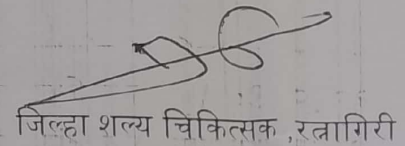 जिल्हा शल्य चिकित्सक ,रत्नागिरी